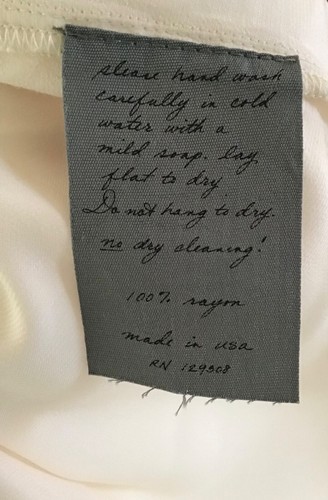 please hand wash
carefully in cold
water with a
mild soap. lay
flat to dry
Do not hang to dry.
no dry cleaning!
100% rayon
made in usa
RN 129308